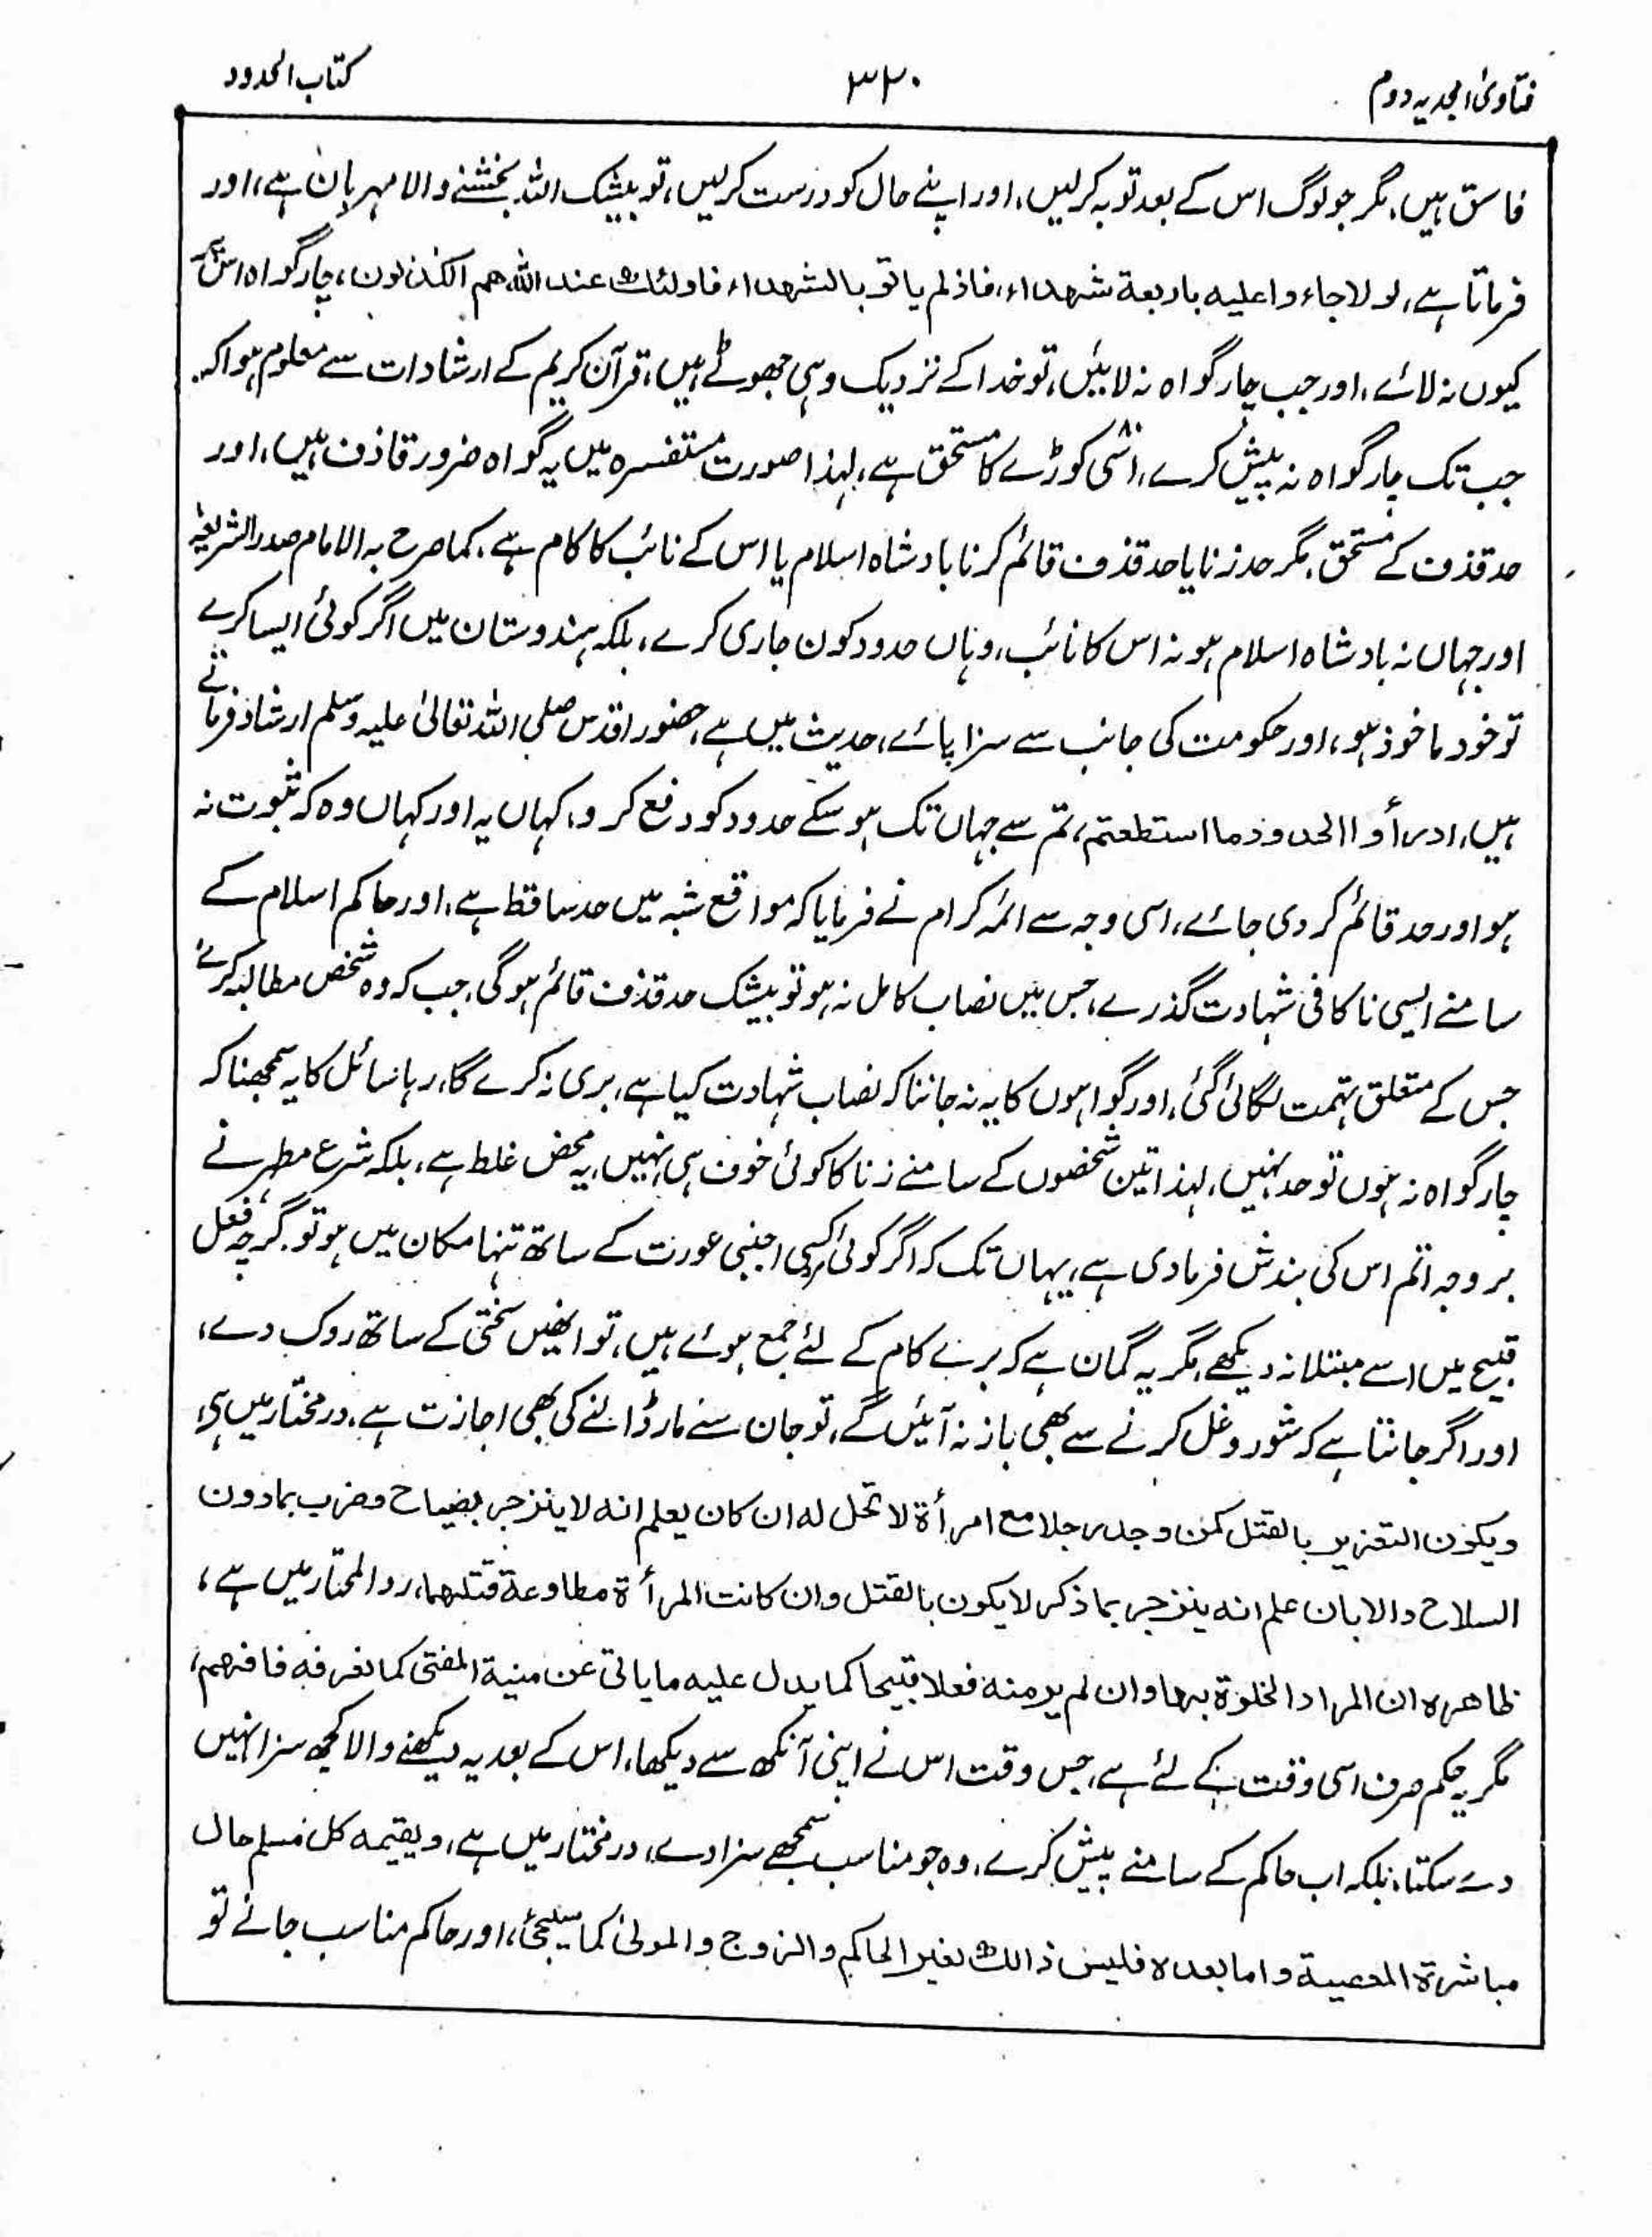 فتاویٰ امجدیہ دوم
۳۲۰
کتاب الحدود
فاسق ہیں، مگر جو لوگ اس کے بعد توبہ کرلیں، اور اپنے حال کو درست کرلیں، تو بیشک اللہ بخشنے والا مہربان ہے، اور
فرماتا ہے، لولا جاءوا علیه باربعة شهداء، فاذ لم یاتوا بالشهداء فاولئك عند الله هم الکذبون، چار گواہ اس پر
کیوں نہ لائے، اور جب چار گواہ نہ لائیں، تو خدا کے نزدیک وہی جھوٹے ہیں، قرآن کریم کے ارشادات سے معلوم ہوا کہ
جب تک چار گواہ نہ پیش کرے، اسّی ۸۰ کوڑے کا مستحق ہے، لہذا صورت مستفسرہ میں یہ گواہ ضرور قاذف ہیں، اور
حد قذف کے مستحق، مگر حد زنا یا حد قذف قائم کرنا بادشاہ اسلام یا اس کے نائب کا کام ہے، کما صرح به الامام صدر الشریعہ
اور جہاں نہ بادشاہ اسلام ہو نہ اس کا نائب، وہاں حدود کون جاری کرے، بلکہ ہندوستان میں اگر کوئی ایسا کرے
تو خود ماخوذ ہو، اور حکومت کی جانب سے سزا پائے، حدیث میں ہے، حضور اقدس صلی اللہ تعالیٰ علیہ وسلم ارشاد فرماتے
ہیں، ادرأوا الحدود ما استطعتم، تم سے جہاں تک ہوسکے حدود کو دفع کرو، کہاں یہ اور کہاں وہ کہ ثبوت نہ
ہو اور حد قائم کردی جائے، اسی وجہ سے ائمہ کرام نے فرمایا کہ مواقع شبہ میں حد ساقط ہے، اور حاکم اسلام کے
سامنے ایسی ناکافی شہادت گذرے، جس میں نصاب کامل نہ ہو تو بیشک حد قذف قائم ہوگی، جب کہ وہ شخص مطالبہ کرے
جس کے متعلق تہمت لگائی گئی، اور گواہوں کا یہ نہ جاننا کہ نصاب شہادت کیا ہے، بری نہ کرے گا، رہا سائل کا یہ سمجھنا کہ
چار گواہ نہ ہوں تو حد نہیں، لہذا تین شخصوں کے سامنے زنا کا کوئی خوف ہی نہیں، یہ محض غلط ہے، بلکہ شرع مطہر نے
بروجہ اتم اس کی بندش فرمادی ہے، یہاں تک کہ اگر کوئی کسی اجنبی عورت کے ساتھ تنہا مکان میں ہو تو گرچہ فعل
قبیح میں اسے مبتلا نہ دیکھے، مگر یہ گمان ہے کہ برے کام کے لئے جمع ہوئے ہیں، تو انھیں سختی کے ساتھ روک دے،
اور اگر جانتا ہے کہ شور و غل کرنے سے بھی باز نہ آئیں گے، تو جان سے مار ڈالنے کی بھی اجازت ہے، درمختار میں ہے
ویکون التعزیر بالقتل کمن وجد رجلا مع امرأة لا تحل له ان کان یعلم انه لا ینزجر بصیاح وضرب بمادون
السلاح والا بان علم انه ینزجر بما ذکر لا یکون بالقتل وان کانت المرأة مطاوعة قتلهما، ردالمحتار میں ہے،
ظاهره ان المراد الخلوة بها وان لم یر منه فعلا قبیحا کما یدل علیه ما یاتی عن منیة المفتی کما نعرفه فافهم،
مگر یہ حکم صرف اسی وقت کے لئے ہے، جس وقت اس نے اپنی آنکھ سے دیکھا، اس کے بعد یہ دیکھنے والا کچھ سزا نہیں
دے سکتا، بلکہ اب حاکم کے سامنے پیش کرے، وہ جو مناسب سمجھے سزا دے، درمختار میں ہے، ویقیمه کل مسلم حال
مباشرة المعصیة واما بعده فلیس ذالك لغیر الحاکم والزوج والمولیٰ کما سیجئ، اور حاکم مناسب جانے تو